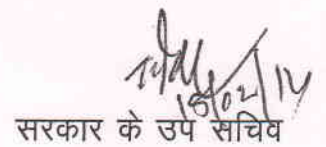 18/02/14
सरकार के उप सचिव